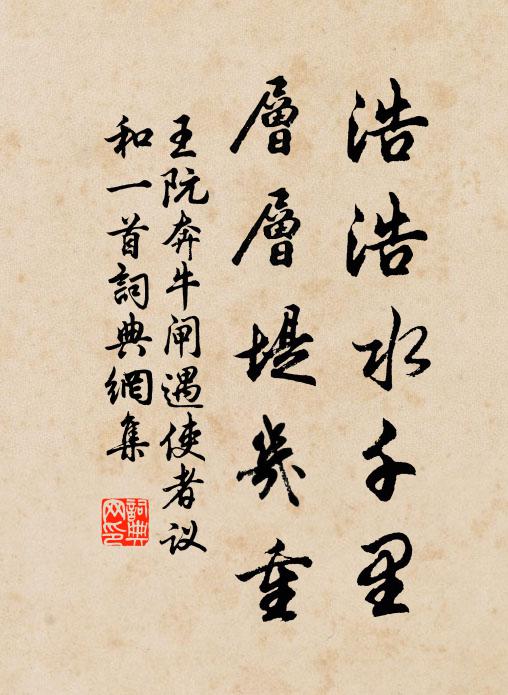 浩浩水千里
層層堤幾重
王阮奔牛闸遇使者议
和一首詞典網集
詞典网印